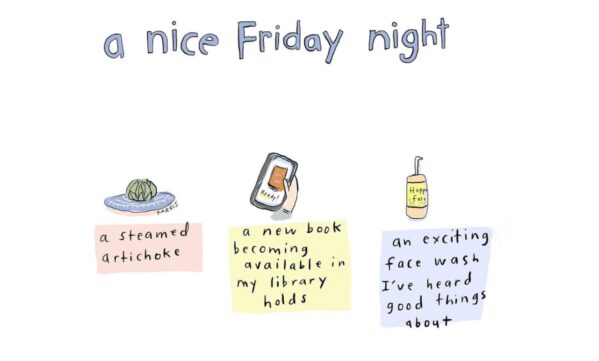 a nice Friday night
FARRIS
Ready!
Happy
face
a steamed
artichoke
a new book
becoming
available in
my library
holds
an exciting
face wash
I've heard
good things
about